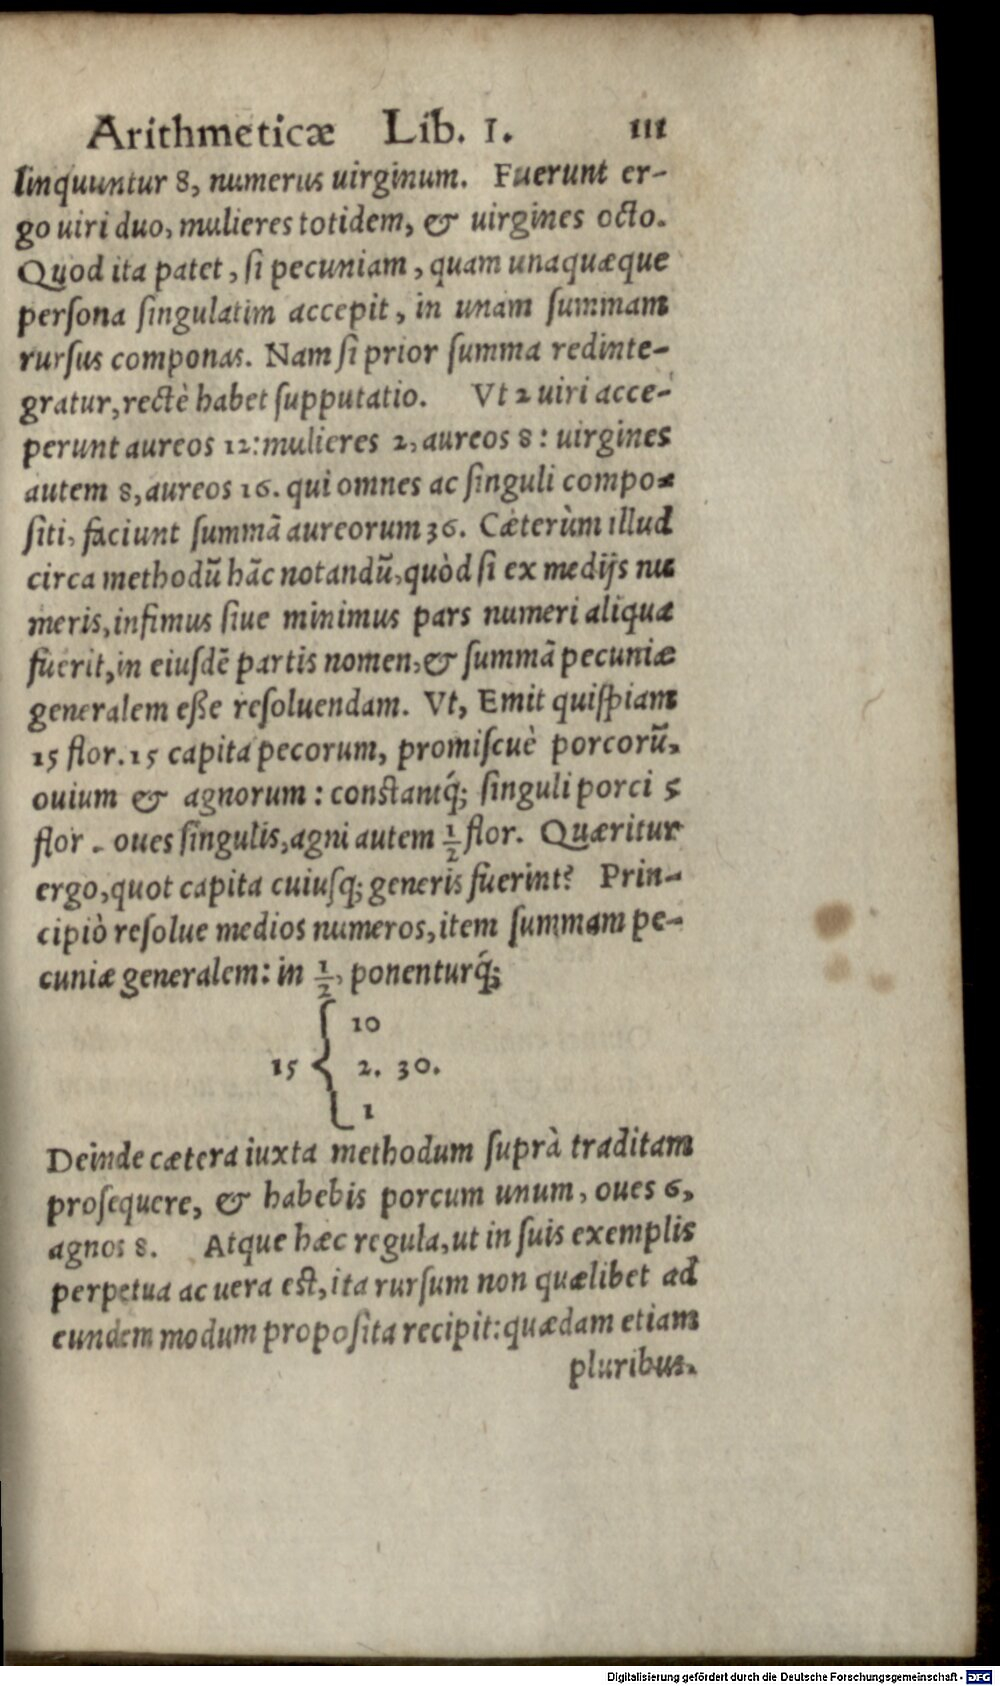 Arithmeticæ Lib. I. 111
linquuntur 8, numerus uirginum. Fuerunt er-
go uiri duo, mulieres totidem, & uirgines octo.
Quod ita patet, ſi pecuniam, quam unaquæque
perſona ſingulatim accepit, in unam ſummam
rurſus componas. Nam ſi prior ſumma redinte-
gratur, rectè habet ſupputatio. Vt 2 uiri acce-
perunt aureos 12: mulieres 2, aureos 8: uirgines
autem 8, aureos 16. qui omnes ac ſinguli compo-
ſiti, faciunt ſummā aureorum 36. Cæterùm illud
circa methodū hāc notandū, quòd ſi ex medijs nu-
meris, infimus ſiue minimus pars numeri aliqua
fuerit, in eiuſdē partis nomen, & ſummā pecuniæ
generalem eſſe reſoluendam. Vt, Emit quiſpiam
15 flor. 15 capita pecorum, promiſcuè porcorū,
ouium & agnorum: conſtantq́; ſinguli porci 5
flor. oues ſingulis, agni autem 1/2 flor. Quæritur
ergo, quot capita cuiuſq; generis fuerint? Prin-
cipiò reſolue medios numeros, item ſummam pe-
cuniæ generalem: in 1/2, ponenturq́;
10
15 { 2. 30.
1
Deinde cætera iuxta methodum ſuprà traditam
proſequere, & habebis porcum unum, oues 6,
agnos 8. Atque hæc regula, ut in ſuis exemplis
perpetua ac uera eſt, ita rurſum non quælibet ad
eundem modum propoſita recipit: quædam etiam
pluribus.
Digitalisierung gefördert durch die Deutsche Forschungsgemeinschaft - DFG